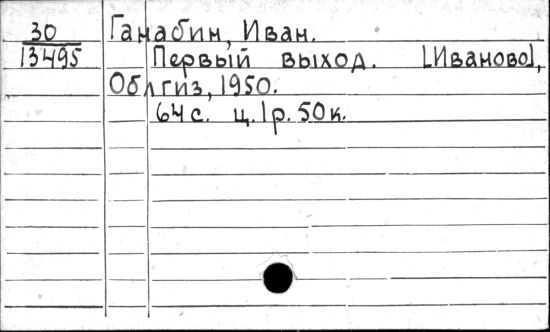 30
13495
Ганабин, Иван.
Первый выход. [Иваново],
Облгиз, 1950.
64 с. ц. 1 р. 50 к.